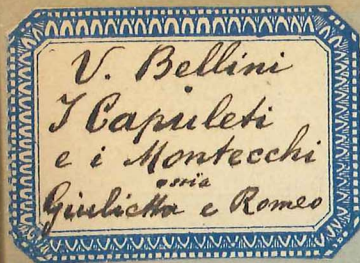 V. Bellini
I Capuleti
e i Montecchi
ossia
Giulietta e Romeo